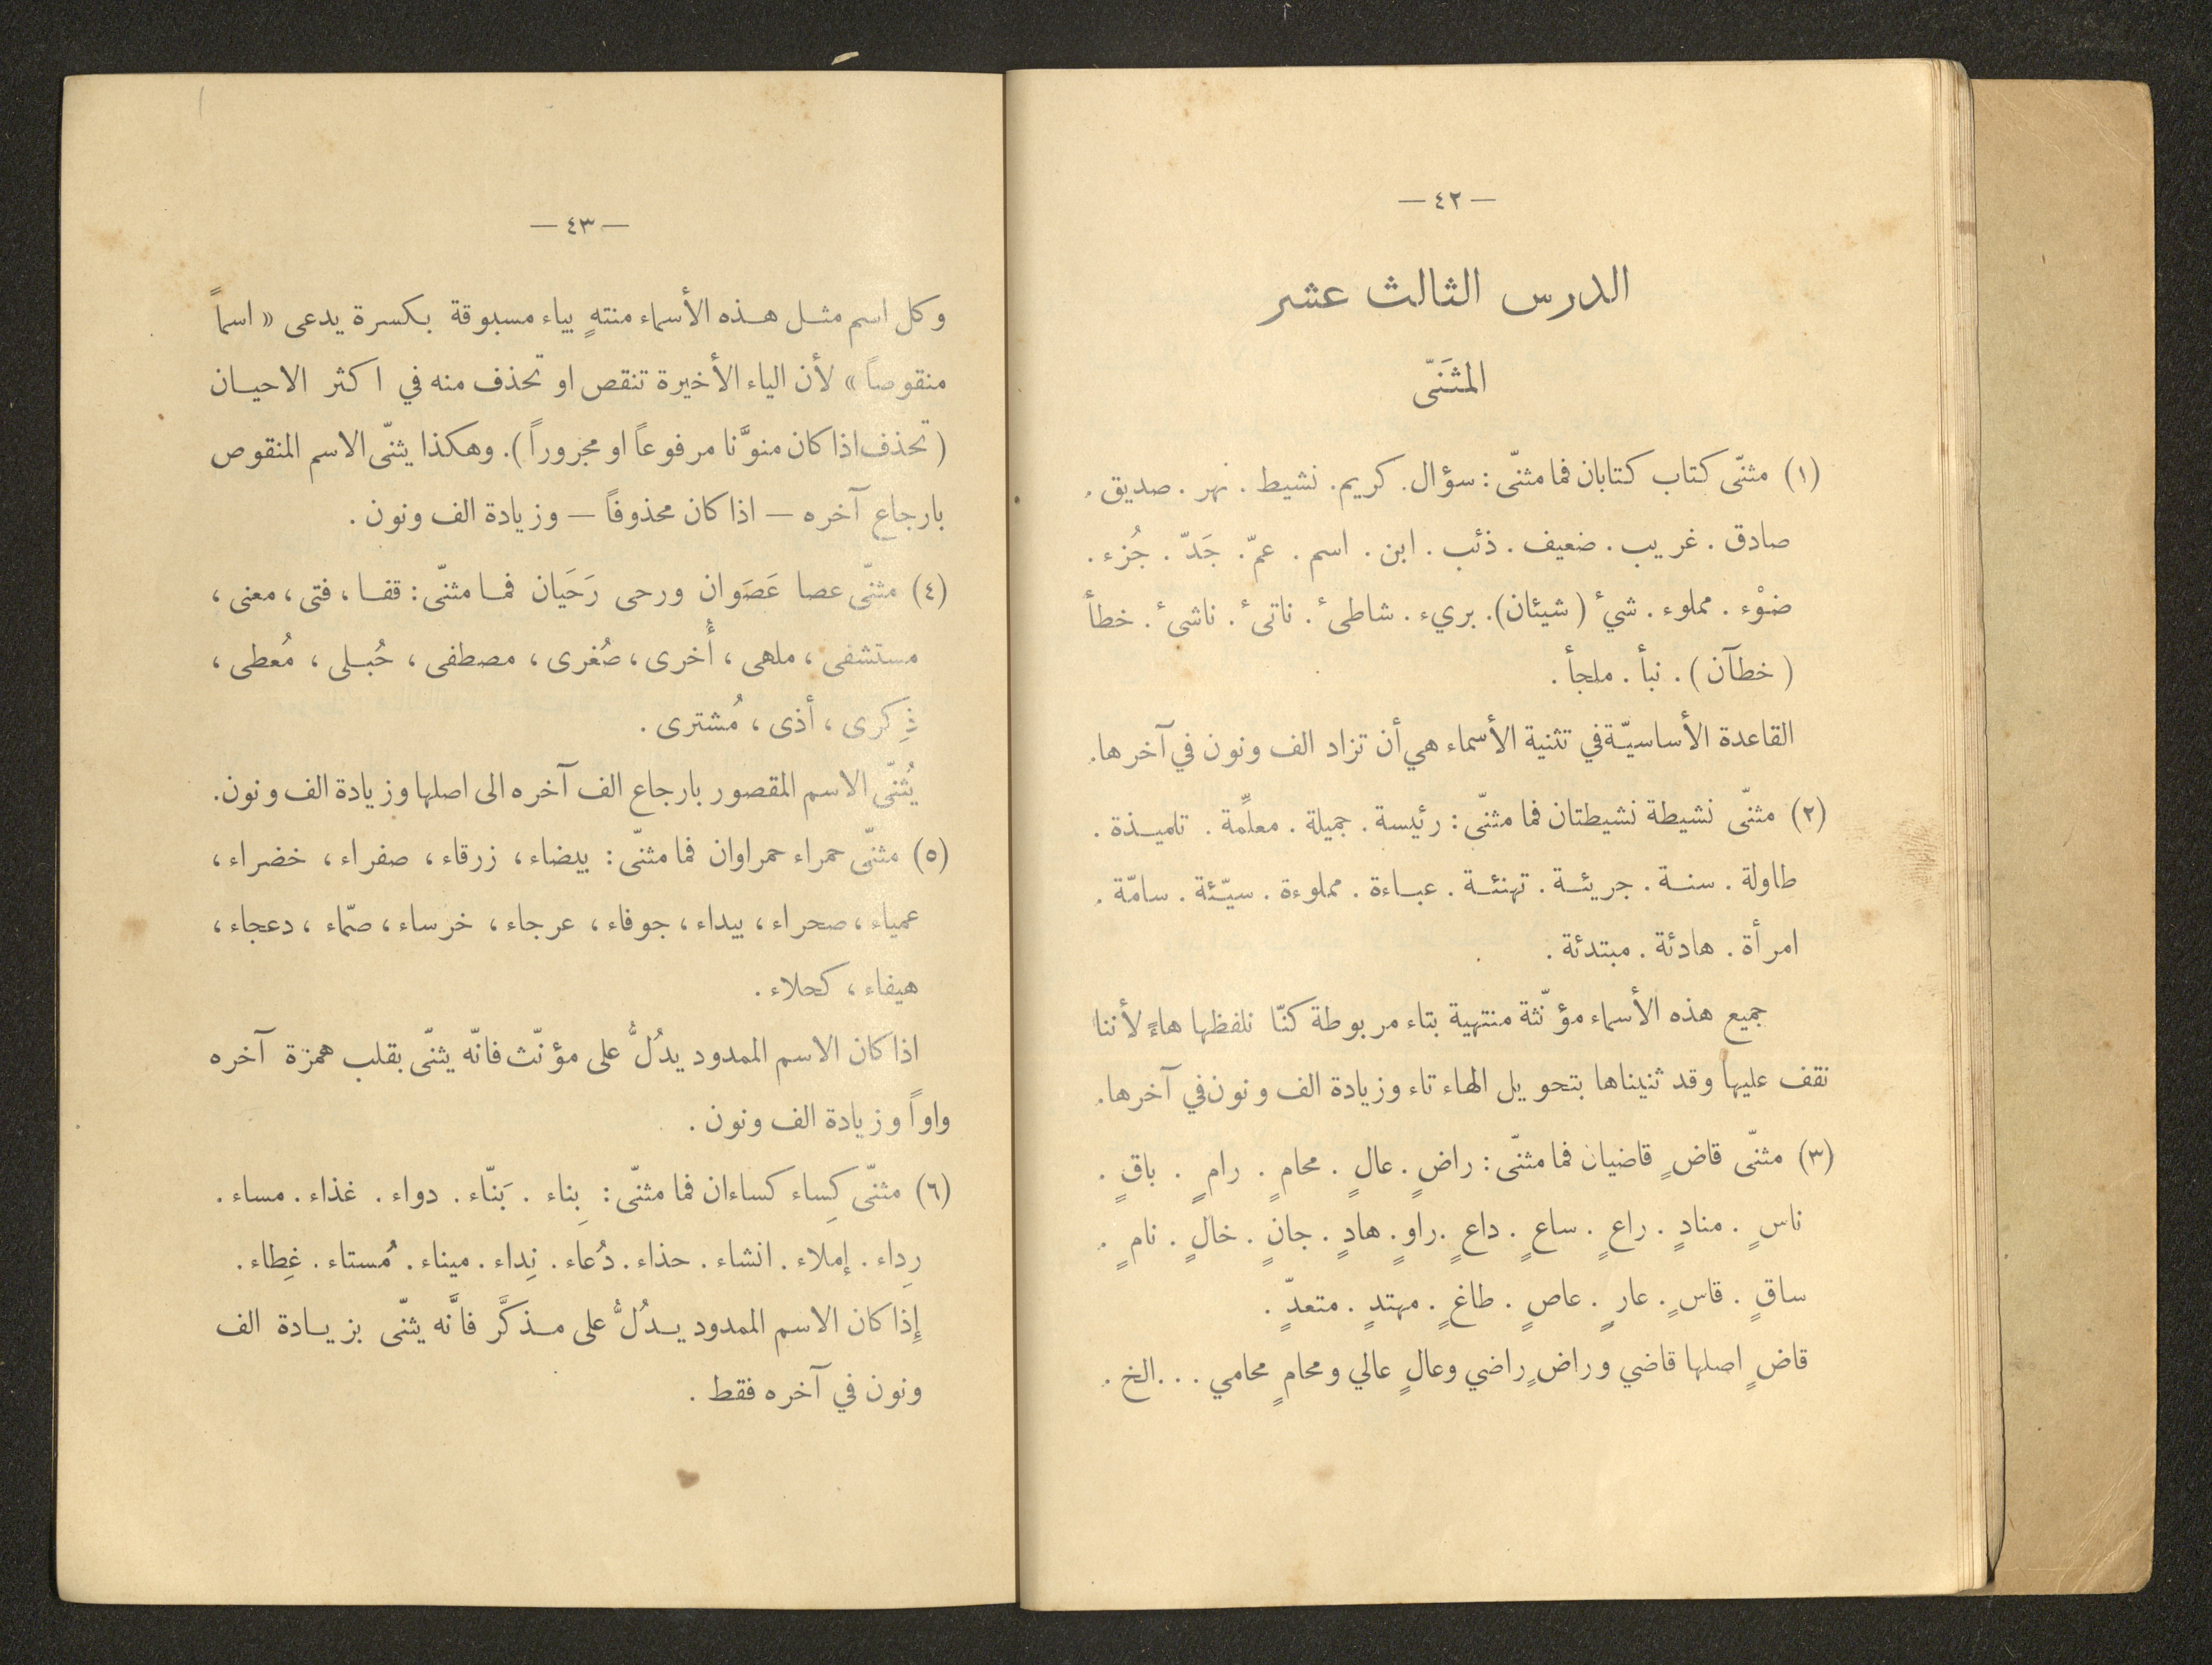 — ٤٢ —
الدرس الثالث عشر
المثَنّى
(١) مثنّى كتاب كتابان فما مثنّى : سؤال. كريم. نشيط . نهر . صديق .
صادق . غريب . ضعيف . ذئب . ابن . اسم . عمّ . جَدّ . جُزء .
ضوْء . مملوء . شيءٌ (شيئان). بريء . شاطىء . ناتىء . ناشىء . خطأ
( خطآن ) . نبأ . ملجأ .
القاعدة الأساسيّة في تثنية الأسماء هي أن تزاد الف ونون في آخرها.
(٢) مثنّى نشيطة نشيطتان فما مثنّى : رئيسة . جميلة . معلِّمة . تلميذة .
طاولة . سنة . جريئة . تهنئة . عباءة . مملوءة . سيّئة . سامّة .
امرأة . هادئة . مبتدئة .
جميع هذه الأسماء مؤنّثة منتهية بتاء مربوطة كنّا نلفظها هاءً لأننا
نقف عليها وقد ثنيناها بتحويل الهاء تاء وزيادة الف ونون في آخرها.
(٣) مثنّى قاضٍ قاضيان فما مثنّى : راضٍ . عالٍ . محامٍ . رامٍ . باقٍ .
ناسٍ . منادٍ . راعٍ . ساعٍ . داعٍ . راوٍ . هادٍ . جانٍ . خالٍ . نامٍ .
ساقٍ . قاسٍ . عارٍ . عاصٍ . طاغٍ . مهتدٍ . متعدٍّ .
قاضٍ اصلها قاضي وراضٍ راضي وعالٍ عالي ومحامٍ محامي . . . الخ .
— ٤٣ —
وكل اسم مثل هذه الأسماء منتهٍ بياء مسبوقة بكسرة يدعى « اسماً
منقوصاً » لأن الياء الأخيرة تنقص او تحذف منه في اكثر الاحيان
( تحذف اذا كان منوَّنا مرفوعاً او مجروراً ). وهكذا يثنّى الاسم المنقوص
بارجاع آخره — اذا كان محذوفاً — وزيادة الف ونون .
(٤) مثنّى عصا عَصَوان ورحى رَحَيان فما مثنّى : قفا ، فتى ، معنى ،
مستشفى ، ملهى ، أُخرى ، صُغرى ، مصطفى ، حُبلى ، مُعطى ،
ذِكرى ، أذى ، مُشترى .
يُثنّى الاسم المقصور بارجاع الف آخره الى اصلها وزيادة الف ونون.
(٥) مثنّى حمراء حمراوان فما مثنّى : بيضاء ، زرقاء ، صفراء ، خضراء ،
عمياء ، صحراء ، بيداء ، جوفاء ، عرجاء ، خرساء ، صمّاء ، دعجاء ،
هيفاء ، كحلاء .
اذا كان الاسم الممدود يدُلُّ على مؤنّث فانّه يثنّى بقلب همزة آخره
واواً وزيادة الف ونون .
(٦) مثنّى كِساء كساءان فما مثنّى : بِناء . بَنّاء . دواء . غذاء . مساء .
رِداء . إملاء . انشاء . حذاء . دُعاء . نِداء . ميناء . مُستاء . غِطاء .
إِذا كان الاسم الممدود يدُلُّ على مذكَّر فانَّه يثنّى بزيادة الف
ونون في آخره فقط .